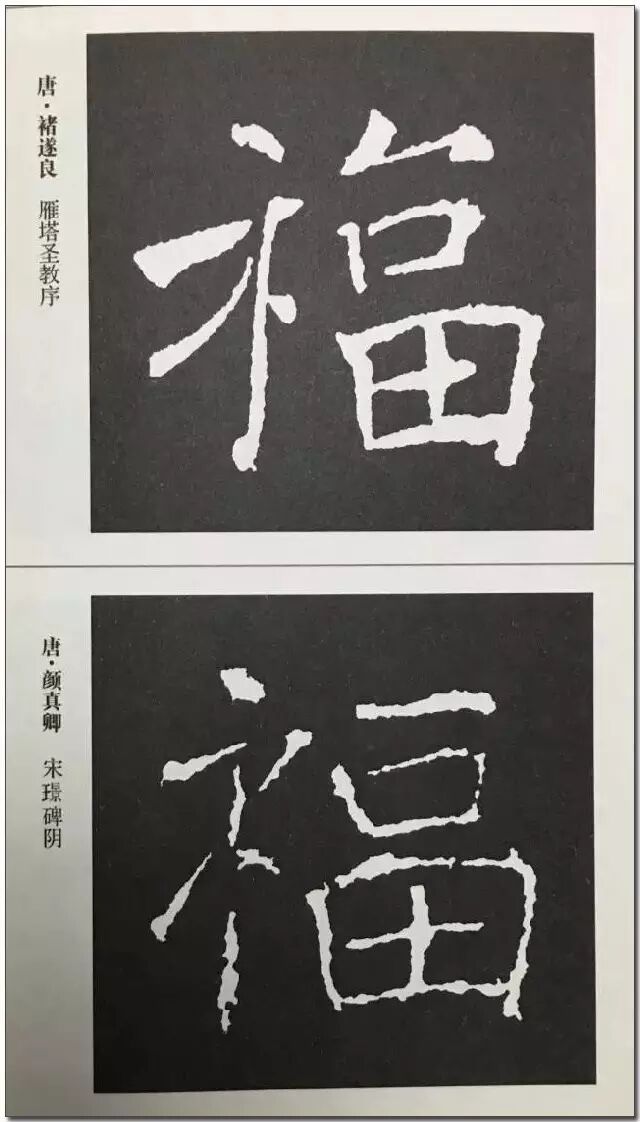 唐·褚遂良 雁塔圣教序
福
唐·颜真卿 宋璟碑阴
福